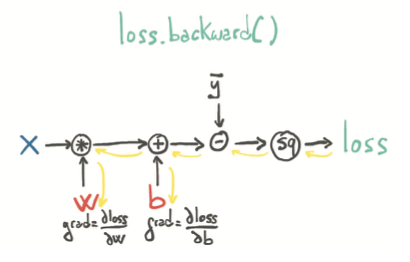 loss.backward()
ȳ
x * + - sq loss
w b
grad = ∂loss/∂w grad = ∂loss/∂b